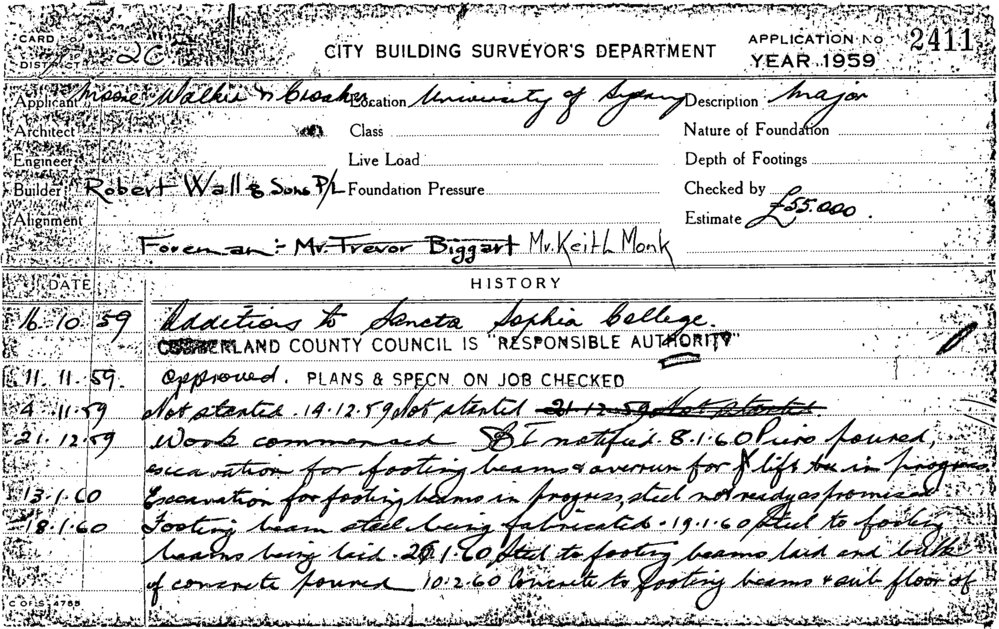 CARD
DISTRICT 2C
CITY BUILDING SURVEYOR'S DEPARTMENT
APPLICATION No 2411
YEAR 1959
Applicant Moore Walker & Croaker Location University of Sydney Description Major
Architect Class Nature of Foundation
Engineer Live Load Depth of Footings
Builder Robert Wall & Sons P/L Foundation Pressure Checked by
Alignment Estimate £55.000.
Foreman:- Mr. Trevor Biggart Mr. Keith Monk
DATE HISTORY
16.10.59 Additions to Sancta Sophia College.
CUMBERLAND COUNTY COUNCIL IS "RESPONSIBLE AUTHORITY"
11.11.59. Approved. PLANS & SPECN. ON JOB CHECKED
4.11.59 Not started. 14.12.59 Not started 21.12.59 Not started
21.12.59 Work commenced notified. 8.1.60 Piers poured,
excavation for footing beams & overrun for lift in progress
13.1.60 Excavation for footing beams in progress, steel not ready as promised
18.1.60 Footing beam steel being fabricated. 19.1.60 Steel to footing
beams being laid. 1.60 Steel to footing beams laid and bulk
of concrete poured 10.2.60 Concrete to footing beams & sub floor of
C OF S 4785